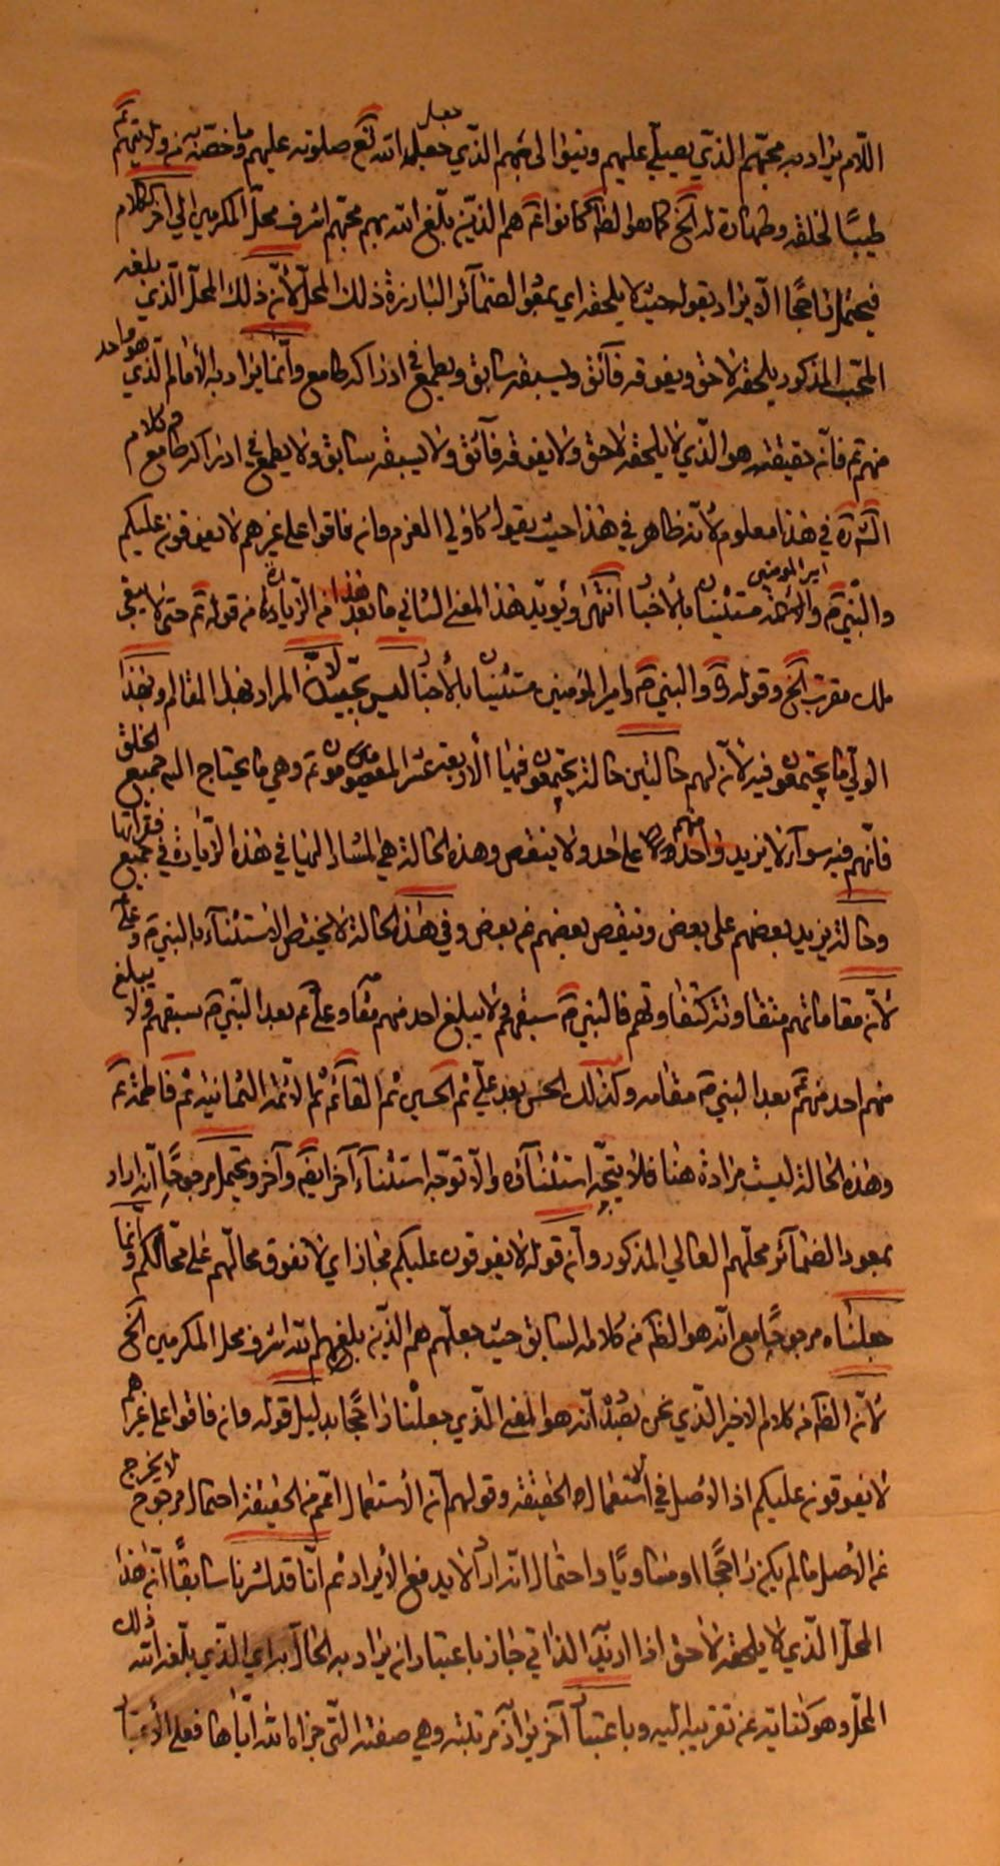 اللام يراد به محبتهم الذي يصلي عليهم وتبوا الى مجهم الذي جعله الله تع صلوته عليهم وما خصّنا به من ولايتهم
طيبًا لخلقه وطهارة له الخ كما هو الظ كما كانوا هم الذين بلغ الله بهم محبتهم اشرف محلّ المكرمين الى آخر كلام
فيحتمل راجحًا الّا يراد بقوله حيث لا يلحقه اي بمعود الضمائر البارزة ذلك المحلّ لأنّ ذلك المحلّ الّذي بلغه
المحب المذكور يلحقه لاحق ويفوقه فائق ويسبقه سابق ويطمع في ادراكه طامع وانّما يراد به الأمام الّذي هو واحد
منهم تم فانّه حقيقة هو الّذي لا يلحقه لاحق ولا يفوقه فآئق ولا يسبقه سابق ولا يطمع في ادراكه طامع وكلام
الش ره في هذا معلوم لأنّه ظاهر في هذا حيث يقول كاولي العزم فانه فاقوا على غيرهم لا يفوقون عليكم
والنبي ص والائمة امير المؤمنين مستثنيان بالأخبار انتهى ويؤيّد هذا المعنى الثاني ما بعد هذا من الزيارة من قوله تم حتى لا يبقى
ملك مقرب الخ وقوله ره والنبي ص وامير المؤمنين مستثنيان بالأخبار ليس بجيّد لانّ المراد بهذا المقام وبهذا
الولي ما يجتمعون فيه لأنّ لهم حالتين حالة يجتمعون فيها الأربعة عشر المعصومون تم وهي ما يحتاج اليه جميع الخلق
فانّهم فيه سواء لا يزيد واحد منهم على احد ولا ينقص وهذه الحالة هي المشار اليها في هذه الزيارة في جميع فقراتها
وحالة يزيد بعضهم على بعض وينقص بعضهم عن بعض وفي هذه الحالة لا يختص الاستثناء بالنبي ص وعلي
لأنّ مقاماتهم متفاوتة فالنبي ص سبقهم ولا يبلغ احد منهم مقامه وعلي تم بعد النّبي ص سبقهم ولا يبلغ
منهم احد منهم تم بعد النبي ص مقامه وكذلك الحسن بعد علي ثم الحسين ثم القائم ثم الائمة الثمانية ثم فاطمة تم
وهذه الحالة ليست مرادة هنا فلا يتجه استثناؤه والّا توجّه استثناء آخر ايضا وآخر ويحتمل مرجوحًا انّه اراد
بمعود الضمائر محلّهم العالي المذكور وأنّ قوله لا يفوقون عليكم مجاز اي لا تفوق محالّهم على محالّكم وانّما
جعلناه مرجوحًا مع انّه هو الظ من كلامه السابق حيث جعلهم هم الذين بلغ بهم الله اشرف محل المكرمين الخ
لأنّ الظ من كلامه الاخير الّذي نحن بصدده انّه هو المعنى الّذي جعلناه راجحًا بدليل قوله فانه فاقوا على غيرهم
لا يفوقون عليكم اذ الاصل في الاستعمال الحقيقة وقولهم انّ الأستعمال اعم من الحقيقة احتمال مرجوح لا يخرج
عن الاصل ما لم يكن راجحًا او مساويًا واحتمال انّه اراد لا يدفع الايراد ثم انّا قد اشرنا سابقًا انّ هذا
المحلّ الّذي لا يلحقه لاحق اذا اريد الذاتي جاز باعتبار ان يراد به الحال به اي الّذي بلّغه الله ذلك
المحلّ وهو كناية عن تقريبه اليه وباعتبار آخر يراد مرتبته وهي صفته التي جزاه الله ايّاها فعلى الأعتبار